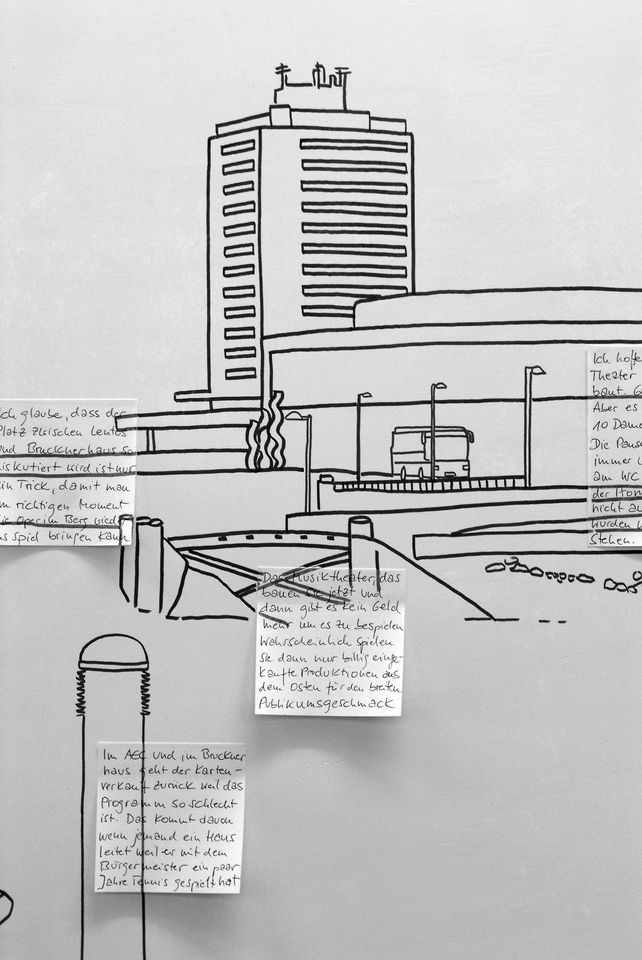 Ich glaube, dass der
Platz zwischen Lentos
und Brucknerhaus so
diskutiert wird ist nur
ein Trick, damit man
im richtigen Moment
die Oper im Berg wieder
ins Spiel bringen kann
Ich hoffe
Theater
baut.
Aber es
10 Dame
Die Pause
immer
am WC
der Prom
nicht au
würden
stehen.
Das Musiktheater, das
bauen sie jetzt und
dann gibt es kein Geld
mehr um es zu bespielen
Wahrscheinlich spielen
sie dann nur billig einge-
kaufte Produktionen aus
dem Osten für den breiten
Publikumsgeschmack
Im AEC und im Bruckner
haus geht der Karten-
verkauf zurück weil das
Programm so schlecht
ist. Das kommt davon
wenn jemand ein Haus
leitet weil er mit dem
Bürgermeister ein paar
Jahre Tennis gespielt hat